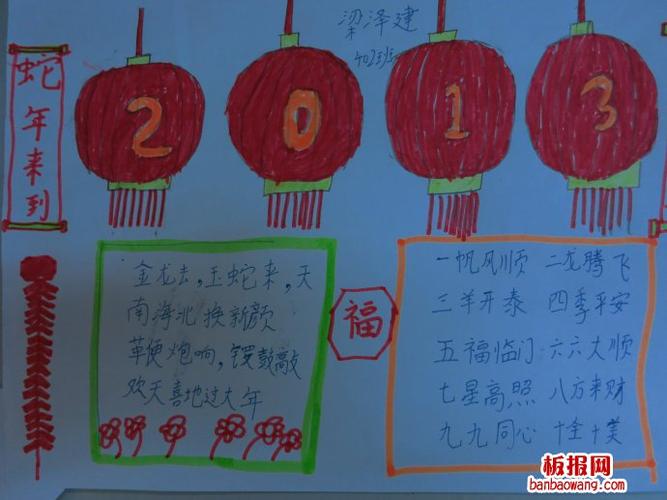 梁泽建
402班
蛇年来到
2013
金龙去，玉蛇来，天
南海北换新颜
革便炮响，锣鼓敲
欢天喜地过大年
福
一帆风顺 二龙腾飞
三羊开泰 四季平安
五福临门 六六大顺
七星高照 八方来财
九九同心 十全十美
板报网
banbaowang.com